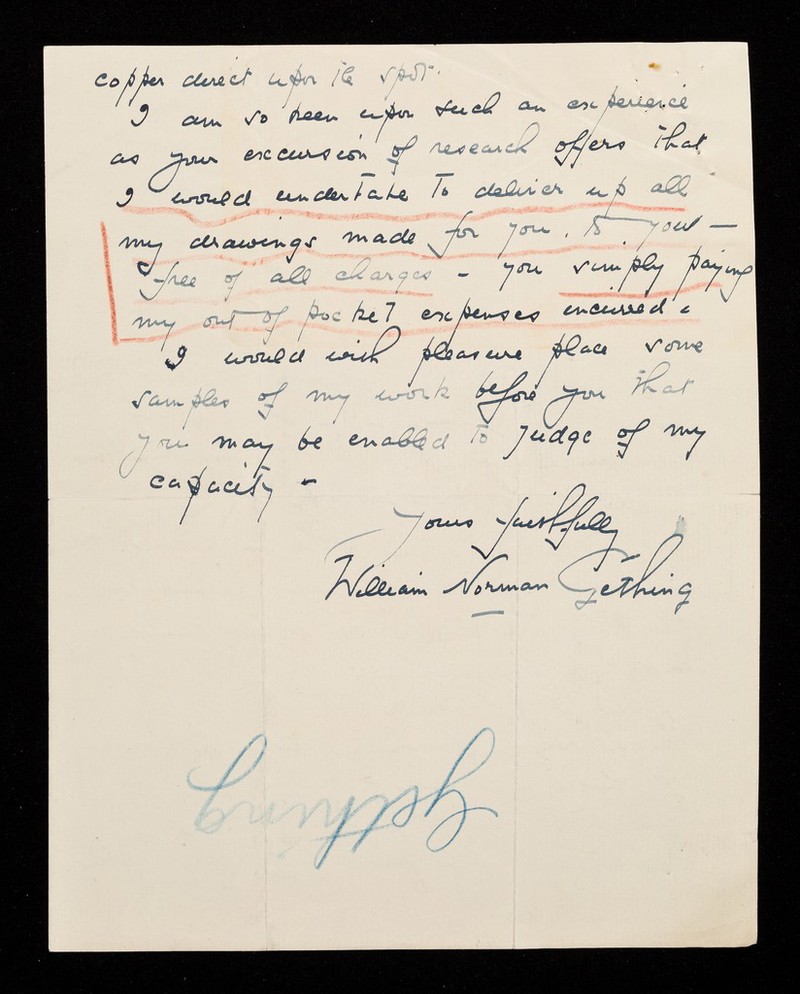 copper direct upon the spot.
I am so keen upon such an experience
as your excursion of research offers that
I would undertake to deliver up all
my drawings made for you, to you —
free of all charges - you simply paying
my out of pocket expenses incurred.
I would with pleasure place some
samples of my work before you that
you may be enabled to judge of my
capacity -
Yours faithfully
William Norman Gething
Gething